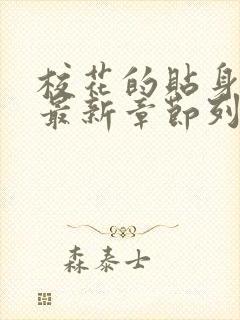 校花的贴身
最新章节列
森泰士